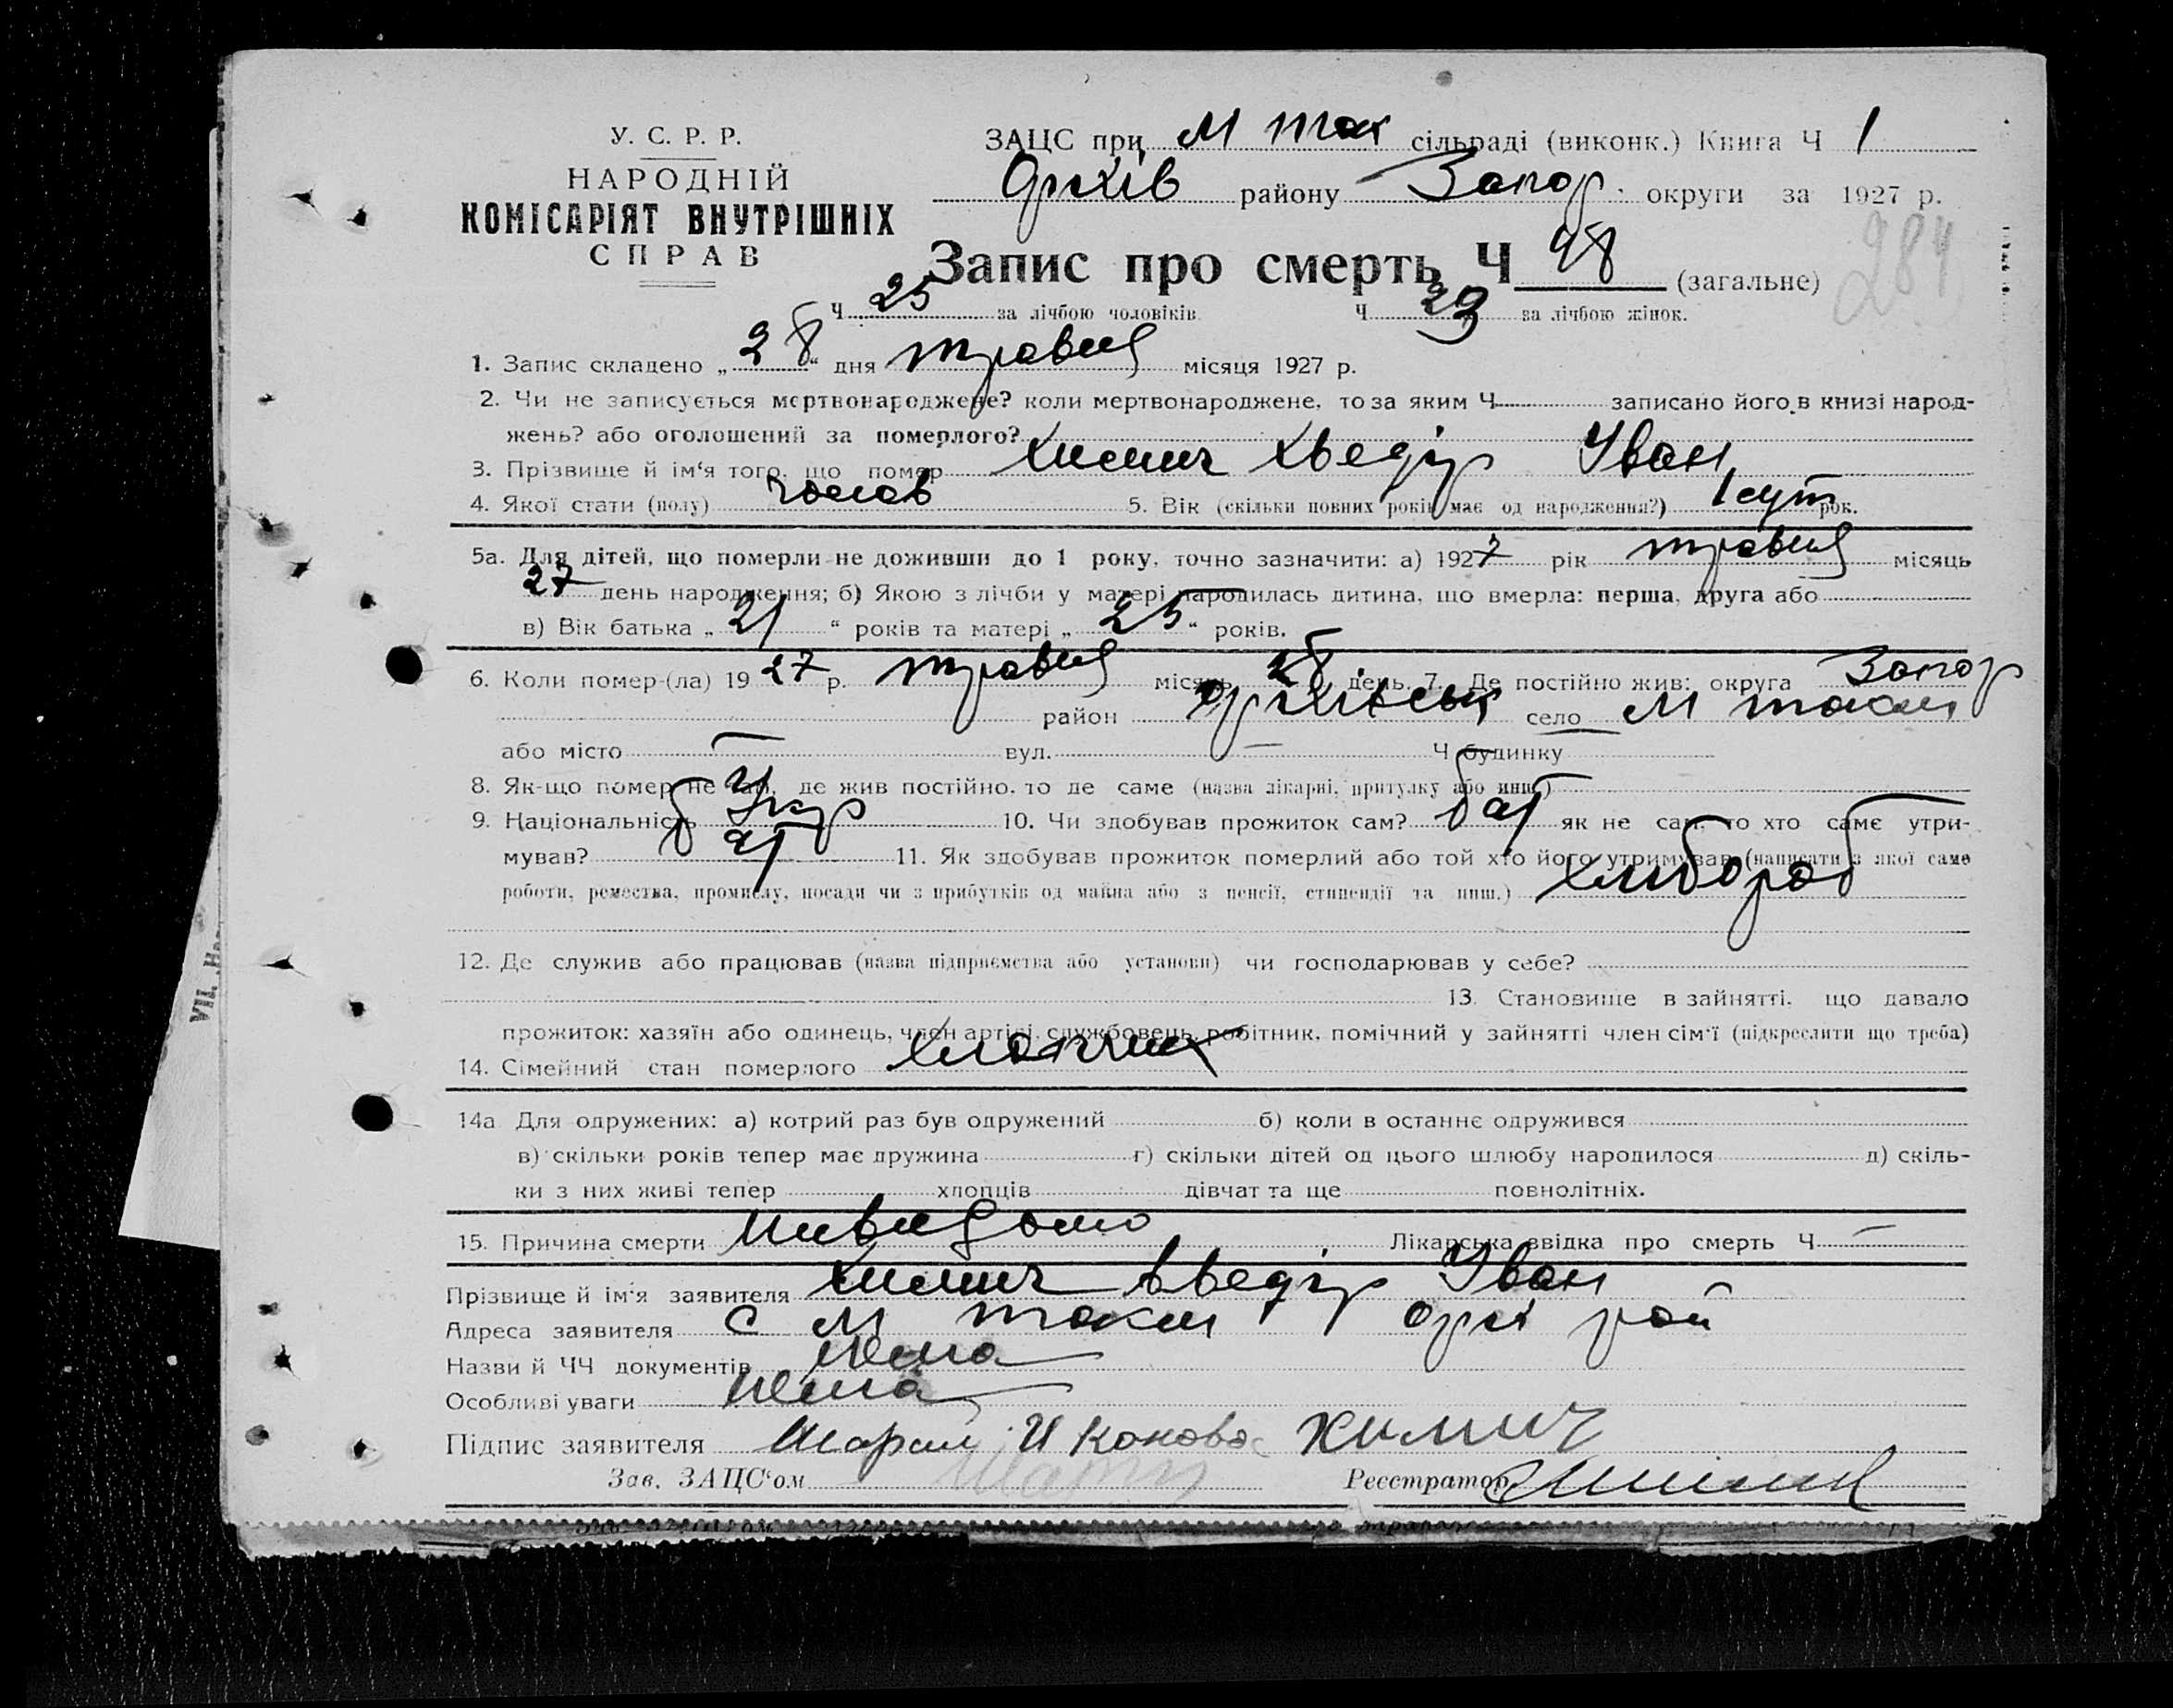 У. С. Р. Р.
НАРОДНІЙ
КОМІСАРІЯТ ВНУТРІШНІХ
СПРАВ
ЗАЦС при М Ток сільраді (виконк.) Книга Ч 1
Оріхів району Запор. округи за 1927 р.
284
Запис про смерть Ч 48 (загальне)
Ч 25 за лічбою чоловіків Ч 23 за лічбою жінок.
1. Запис складено „ 28 “ дня травня місяця 1927 р.
2. Чи не записується мертвонароджене? коли мертвонароджене, то за яким Ч записано його в книзі народ-
жень? або оголошений за померлого?
3. Прізвище й ім'я того, що помер Химич Хведір Іван
4. Якої стати (полу) чолов 5. Вік (скільки повних років має од народження?) 1 сут рок.
5а. Для дітей, що померли не доживши до 1 року, точно зазначити: а) 1927 рік травня місяць
27 день народження; б) Якою з лічби у матері народилась дитина, що вмерла: перша, друга або
в) Вік батька „ 21 “ років та матері „ 25 “ років.
6. Коли помер-(ла) 1927 р. травня місяць 28 день. 7. Де постійно жив: округа Запор
район Оріхівськ село М Токм
або місто — вул. — Ч будинку
8. Як-що помер не там, де жив постійно, то де саме (назва лікарні, притулку або инш.)
9. Національність Укр 10. Чи здобував прожиток сам? бат як не сам, то хто саме утри-
мував? 11. Як здобував прожиток померлий або той хто його утримував (написати з якої саме
роботи, ремества, промислу, посади чи з прибутків од майна або з пенсії, стипендії та инш.) хлибороб
12. Де служив або працював (назва підприємства або установи) чи господарював у себе?
13. Становище в зайнятті, що давало
прожиток: хазяїн або одинець, член артілі, службовець, робітник, помічний у зайнятті член сім'ї (підкреслити що треба)
14. Сімейний стан померлого хлопчик
14а Для одружених: а) котрий раз був одружений б) коли в останнє одружився
в) скільки років тепер має дружина г) скільки дітей од цього шлюбу народилося д) скіль-
ки з них живі тепер хлопців дівчат та ще повнолітніх.
15. Причина смерти Лікарська звідка про смерть Ч —
Прізвище й ім'я заявителя Химич Хведір Іван
Адреса заявителя с М Токм Оріх рай
Назви й ЧЧ документів Нема
Особливі уваги Нема
Підпис заявителя Химич
Зав. ЗАЦС'ом Реєстратор